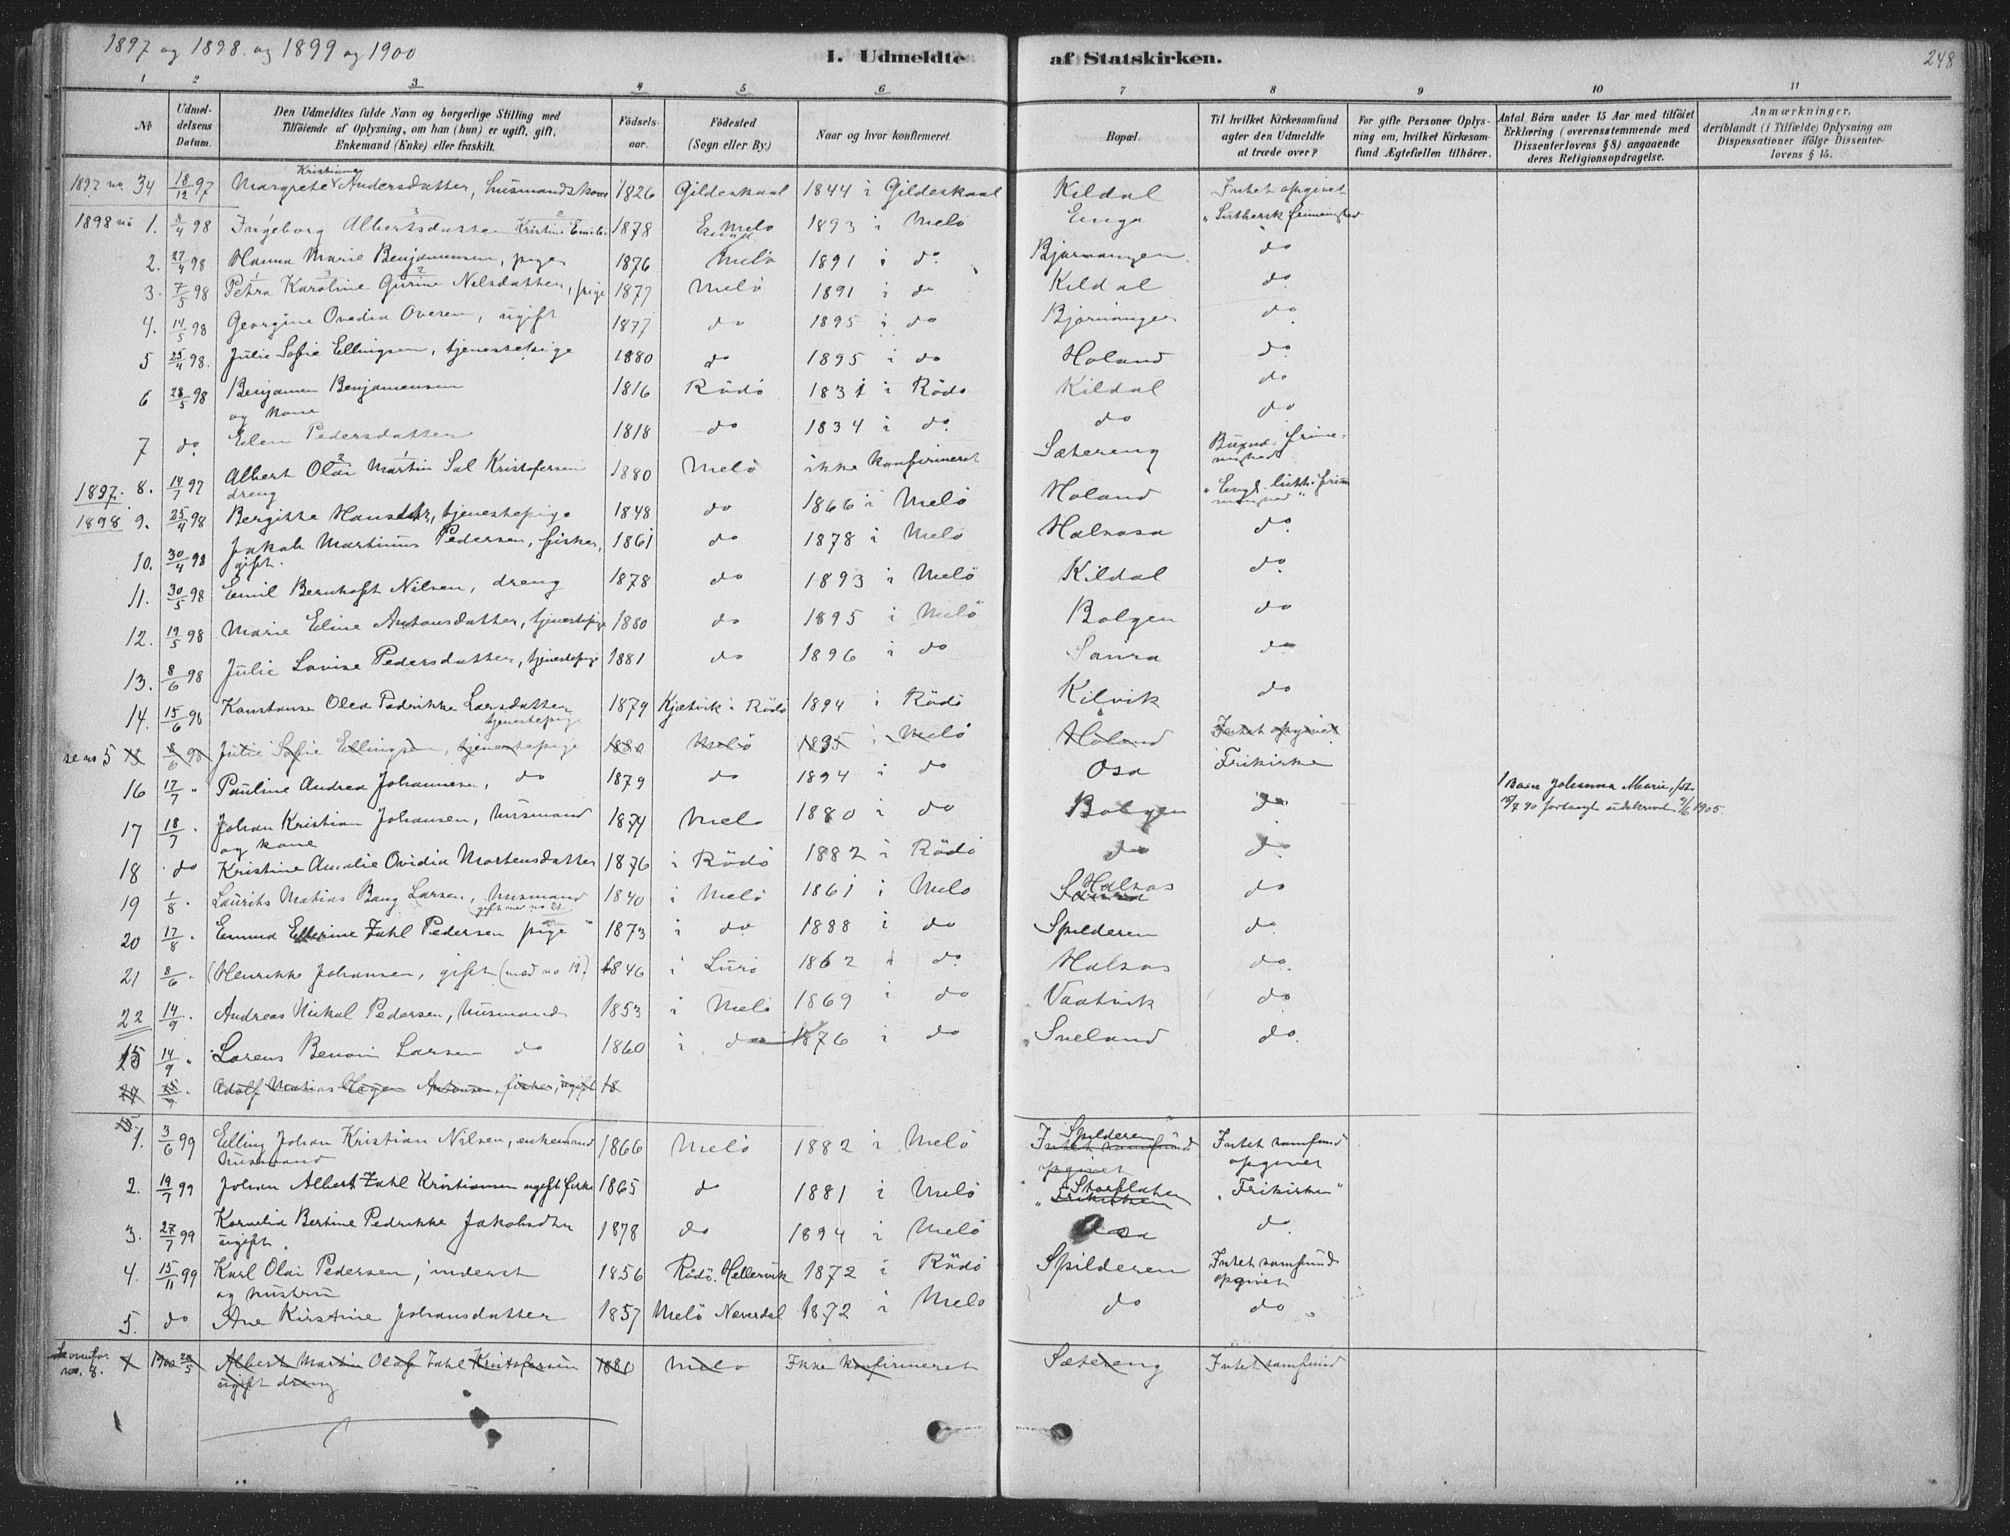 1897 og 1898 og 1899 og 1900
I. Udmeldte af Statskirken.
248
1 2 3 4 5 6 7 8 9 10 11
No
Udmeldelsens Datum.
Den Udmeldtes fulde Navn og borgerlige Stilling med Tilføiende af Oplysning, om han (hun) er ugift, gift, Enkemand (Enke) eller fraskilt.
Fødselsaar.
Fødested (Sogn eller By.)
Naar og hvor konfirmeret
Bopæl.
Til hvilket Kirkesamfund agter den Udmeldte at træde over?
For gifte Personer Oplysning om, hvilket Kirkesamfund Ægtefællen tilhører.
Antal Børn under 15 Aar med tilføiet Erklæring (overensstemmende med Dissenterlovens § 8) angaaende deres Religionsopdragelse.
Anmærkninger, deriblandt (i Tilfælde) Oplysning om Dispensationer ifølge Dissenterlovens § 15.
1897 no 34 18/12 97 Margrete Kristianna Andersdatter, husmandskone 1826 Gildeskaal 1844 i Gildeskaal Kildal Intet opgivet
1898 no 1. 8/4 98 Ingeborg Albertsdatter Kristine Emilie 1878 Melø 1893 i Melö Enga "Luthersk frimenighed
2. 27/4 98 Hanna Marie Benjaminsen, pige 1876 Melö 1891 i do. Bjærangen do
3. 7/5 98 Petra Karoline Gurine Nilsdatter, pige 1877 Melö 1891 i do Kildal do
4. 14/5 98 Georgine Ovedia Oversen, ugift 1877 do 1895 i do Bjærangen do
5 25/4 98. Julie Sofie Ellingsen, tjenestepige 1880 do 1895 i do Holand do
6 28/5 98 Benjamen Benjamensen 1816 Rödö 1831 i Rödö Kildal do
og kone
7 do. Elen Pedersdatter 1818 do 1834 i do. do do
1897. 8. 14/7 97 Albert Olai Martin Sal Kristofersen 1880 Melö ikke konfirmeret Sætereng
dreng
1898 9. 25/4 98 Bergitte Hansdtr, tjenestepige 1848 do 1866 i Melö Holand
10. 30/4 98 Jakob Martinus Pedersen, fisker, 1861 do 1878 i Melö Halsosa do
gift.
11. 30/5 98 Emil Bernhoft Nilsen, dreng 1878 do 1893 i Melö Kildal do
12. 19/5 98 Marie Eline Antonsdatter, tjenestepige 1880 do 1895 i Melö Bolgen do
13. 8/6 98 Julie Lovise Pedersdatter, tjenestepige 1881 do 1896 i do Saura do
14. 15/6 98 Konstanse Olea Pedrikke Larsdatter 1879 Kjetvik i Rödö 1894 i Rödö Kilvik do
tjenestepige
se no 5 15 8/6 98 Julie Sofie Ellingsen, tjenestepige 1880 Melö 1895 i Melö Holand Intet opgivet
16 17/7 " Pauline Andrea Johannesen, do 1879 do 1894 i do Osa Frikirke
17 18/7 . Johan Kristian Johansen, husmand 1874 Melö 1880 i do Bolgen do 1 Barn Johanna Marie, født
15/7 90 forlangt udskrevet 2/6 1905.
og kone
18 do Kristine Amalie Ovidia Mortensdatter 1876 i Rödö 1882 i Rödö do do
19 1/8 . Laurits Matias Bang Larsen, husmand 1840 i Melö 1861 i Melö Halsos do
gift med no 21
20 17/8 . Emma Ellerine Zahl Pedersen pige 1873 i do 1888 i do Spilderen do
21 8/6 . (Henrikke Johansen, gift (med no 19.) 1846 i Lurö 1862 i do. Halsos do.
22 14/9 . Andreas Nikal Pedersen, husmand 1853 i Melö 1869 i do Vaatvik do
15 14/9 . Lorens Benoni Larsen do 1860 i do 1876 i do Sneland do.
24 15/9 . Adolf Matias Hagen Antonsen, fisker, ugift 18
1. 3/6 99 Elling Johan Kristian Nilsen, enkemand 1866 Melö 1882 i Melö Spilderen Intet samfund
husmand Intet samfund opgivet opgivet
2. 19/7 99 Johan Albert Zahl Kristiansen ugift fisker 1865 do 1881 i Melö Storflaten "Frikirken"
Frikirken
3. 27/7 99 Kornelia Bertine Pedrikke Jakobsdtr 1878 do 1894 i Melö Osa do.
ugift.
4. 15/11 99 Karl Olai Pedersen, inderst 1856 Rödö. Hellervik 1872 i Rödö Spilderen Intet samfund
og hustru opgivet
5. do Ane Kirstine Johansdatter 1857 Melö Neverdal 1872 i Melö do do
ovenfor no. 8. 1 1900 28/5 Albert Martin Olaf Zahl Kristofersen 1880 Melö Ikke konfirmeret Sætereng Intet samfund
ugift dreng